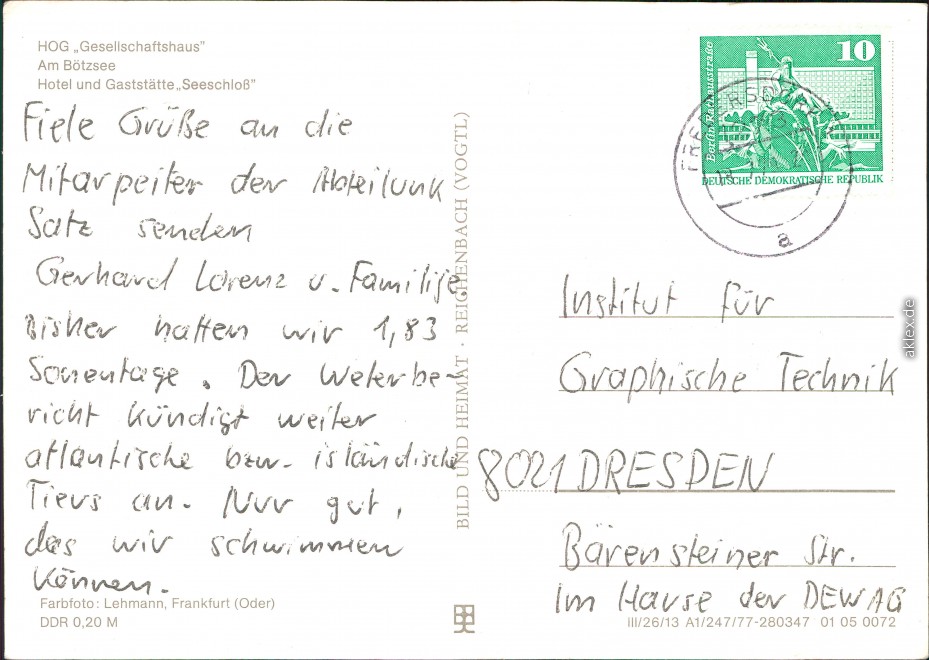 HOG „Gesellschaftshaus"
Am Bötzsee
Hotel und Gaststätte „Seeschloß"
Fiele Grüße an die
Mitarpeiter der Abteilunk
Satz senden
Gerhard Lorenz u. Familije.
Bisher hatten wir 1,83
Sonentage. Der Weterbe-
richt kündigt weiter
atlantische bzw. isländische
Tievs an. Nur gut,
das wir schwimmen
können.
Farbfoto: Lehmann, Frankfurt (Oder)
DDR 0,20 M
BILD UND HEIMAT · REICHENBACH (VOGTL)
10
Berlin, Rathausstraße
DEUTSCHE DEMOKRATISCHE REPUBLIK
a
Institut für
Graphische Technik
8021 DRESDEN
Bärensteiner Str.
Im Hause der DEWAG
III/26/13 A1/247/77-280347 01 05 0072
aklex.de